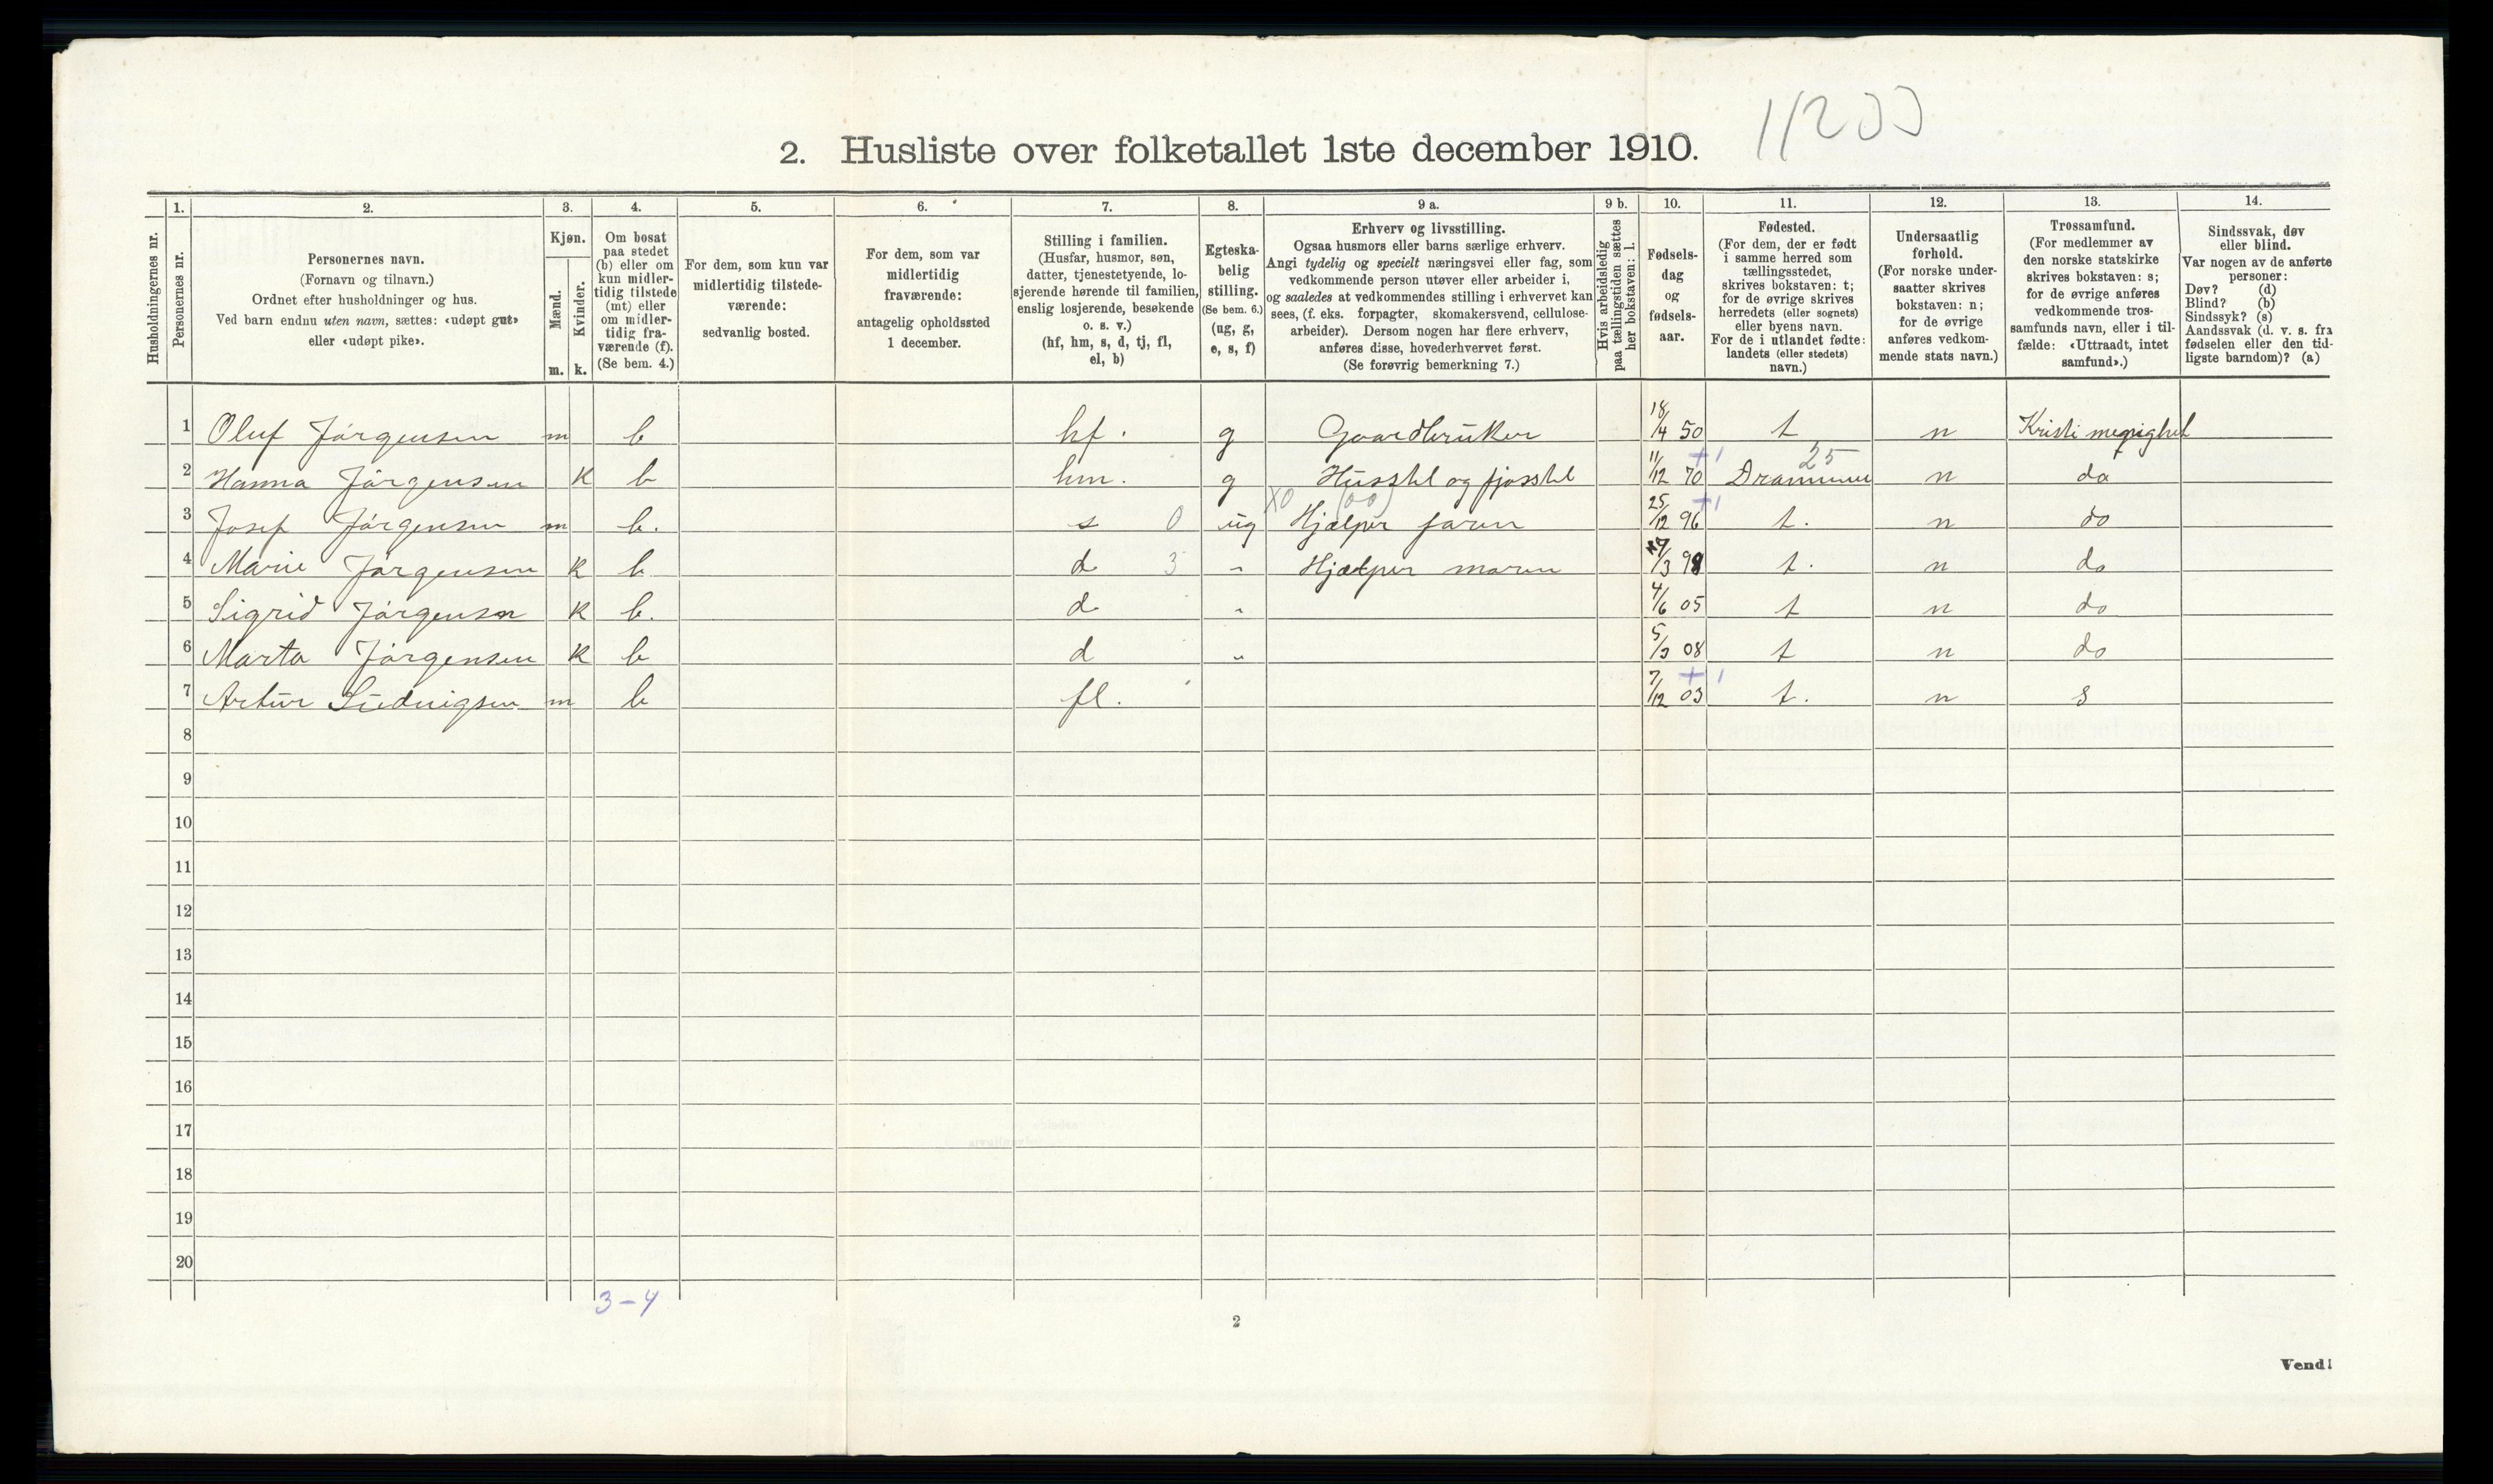 11200
2. Husliste over folketallet 1ste december 1910.
Husholdningernes nr.
1. Personernes nr.
2. Personernes navn.
(Fornavn og tilnavn.)
Ordnet efter husholdninger og hus.
Ved barn endnu uten navn, sættes: «udøpt gut»
eller «udøpt pike».
3. Kjøn.
Mænd. m.
Kvinder. k.
4. Om bosat
paa stedet
(b) eller om
kun midler-
tidig tilstede
(mt) eller
om midler-
tidig fra-
værende (f).
(Se bem. 4.)
5. For dem, som kun var
midlertidig tilstede-
værende:
sedvanlig bosted.
6. For dem, som var
midlertidig
fraværende:
antagelig opholdssted
1 december.
7. Stilling i familien.
(Husfar, husmor, søn,
datter, tjenestetyende, lo-
sjerende hørende til familien,
enslig losjerende, besøkende
o. s. v.)
(hf, hm, s, d, tj, fl,
el, b)
8. Egteska-
belig
stilling.
(Se bem. 6.)
(ug, g,
e, s, f)
9 a. Erhverv og livsstilling.
Ogsaa husmors eller barns særlige erhverv.
Angi tydelig og specielt næringsvei eller fag, som
vedkommende person utøver eller arbeider i,
og saaledes at vedkommendes stilling i erhvervet kan
sees, (f. eks. forpagter, skomakersvend, cellulose-
arbeider). Dersom nogen har flere erhverv,
anføres disse, hovederhvervet først.
(Se forøvrig bemerkning 7.)
9 b. Hvis arbeidsledig
paa tællingstiden sættes
her bokstaven: l.
10. Fødsels-
dag
og
fødsels-
aar.
11. Fødested.
(For dem, der er født
i samme herred som
tællingsstedet,
skrives bokstaven: t;
for de øvrige skrives
herredets (eller sognets)
eller byens navn.
For de i utlandet fødte:
landets (eller stedets)
navn.)
12. Undersaatlig
forhold.
(For norske under-
saatter skrives
bokstaven: n;
for de øvrige
anføres vedkom-
mende stats navn.)
13. Trossamfund.
(For medlemmer av
den norske statskirke
skrives bokstaven: s;
for de øvrige anføres
vedkommende tros-
samfunds navn, eller i til-
fælde: «Uttraadt, intet
samfund».)
14. Sindssvak, døv
eller blind.
Var nogen av de anførte
personer:
Døv? (d)
Blind? (b)
Sindssyk? (s)
Aandssvak (d. v. s. fra
fødselen eller den tid-
ligste barndom)? (a)
1 Oluf Jörgensen m b hf. g Gaardbruker 18/4 50 t n Kristi menighet
2 Hanna Jörgensen k b hm. g Husstel og fjösstel 11/12 70 +1 Drammen 25 n do
3 Josef Jörgensen m b. s 0 ug X0 (00) Hjælper faren 25/12 96 +1 t. n do
4 Marie Jörgensen k b d 3 " Hjælper moren /3 98 t. n do
5 Sigrid Jörgensen k b. d " 4/6 05 t n do
6 Marta Jörgensen k b d " 5/3 08 t n do
7 Artur Ludvigsen m b fl. 7/12 03 +1 t. n s
8
9
10
11
12
13
14
15
16
17
18
19
20
3-4
2
Vend!